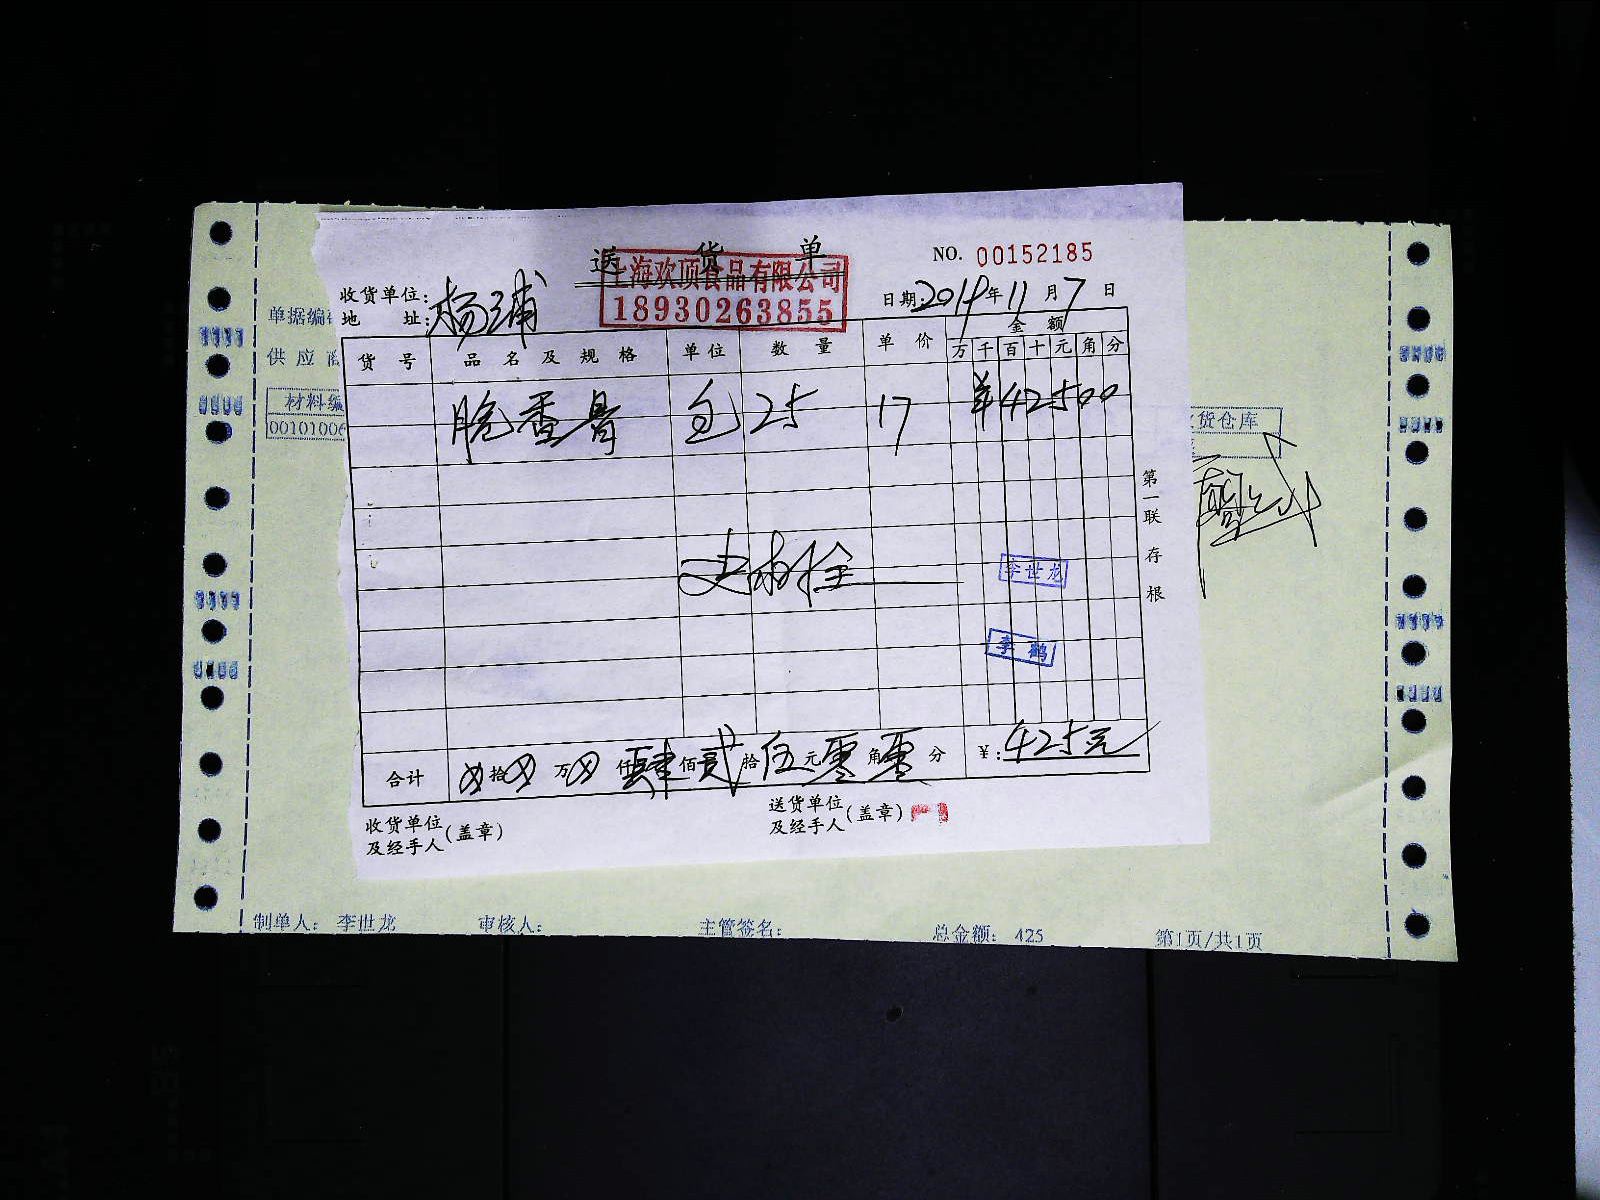 送 货 单
NO. 00152185
上海欢顶食品有限公司
18930263855
收货单位:
地 址: 杨浦
日期: 2019年11月7日
单据编
供 应 商
材料编
00101006
货 号 品 名 及 规 格 单位 数 量 单 价 金 额
万 千 百 十 元 角 分
脆香骨 包 25 17 ¥42500
货仓库
第一联存根
李世龙
李鹂
合计 ⊗拾⊗万⊗仟肆佰贰拾伍元零角零分 ¥: 425元
收货单位
及经手人(盖章)
送货单位
及经手人(盖章)
制单人: 李世龙 审核人: 主管签名: 总金额: 425 第1页/共1页